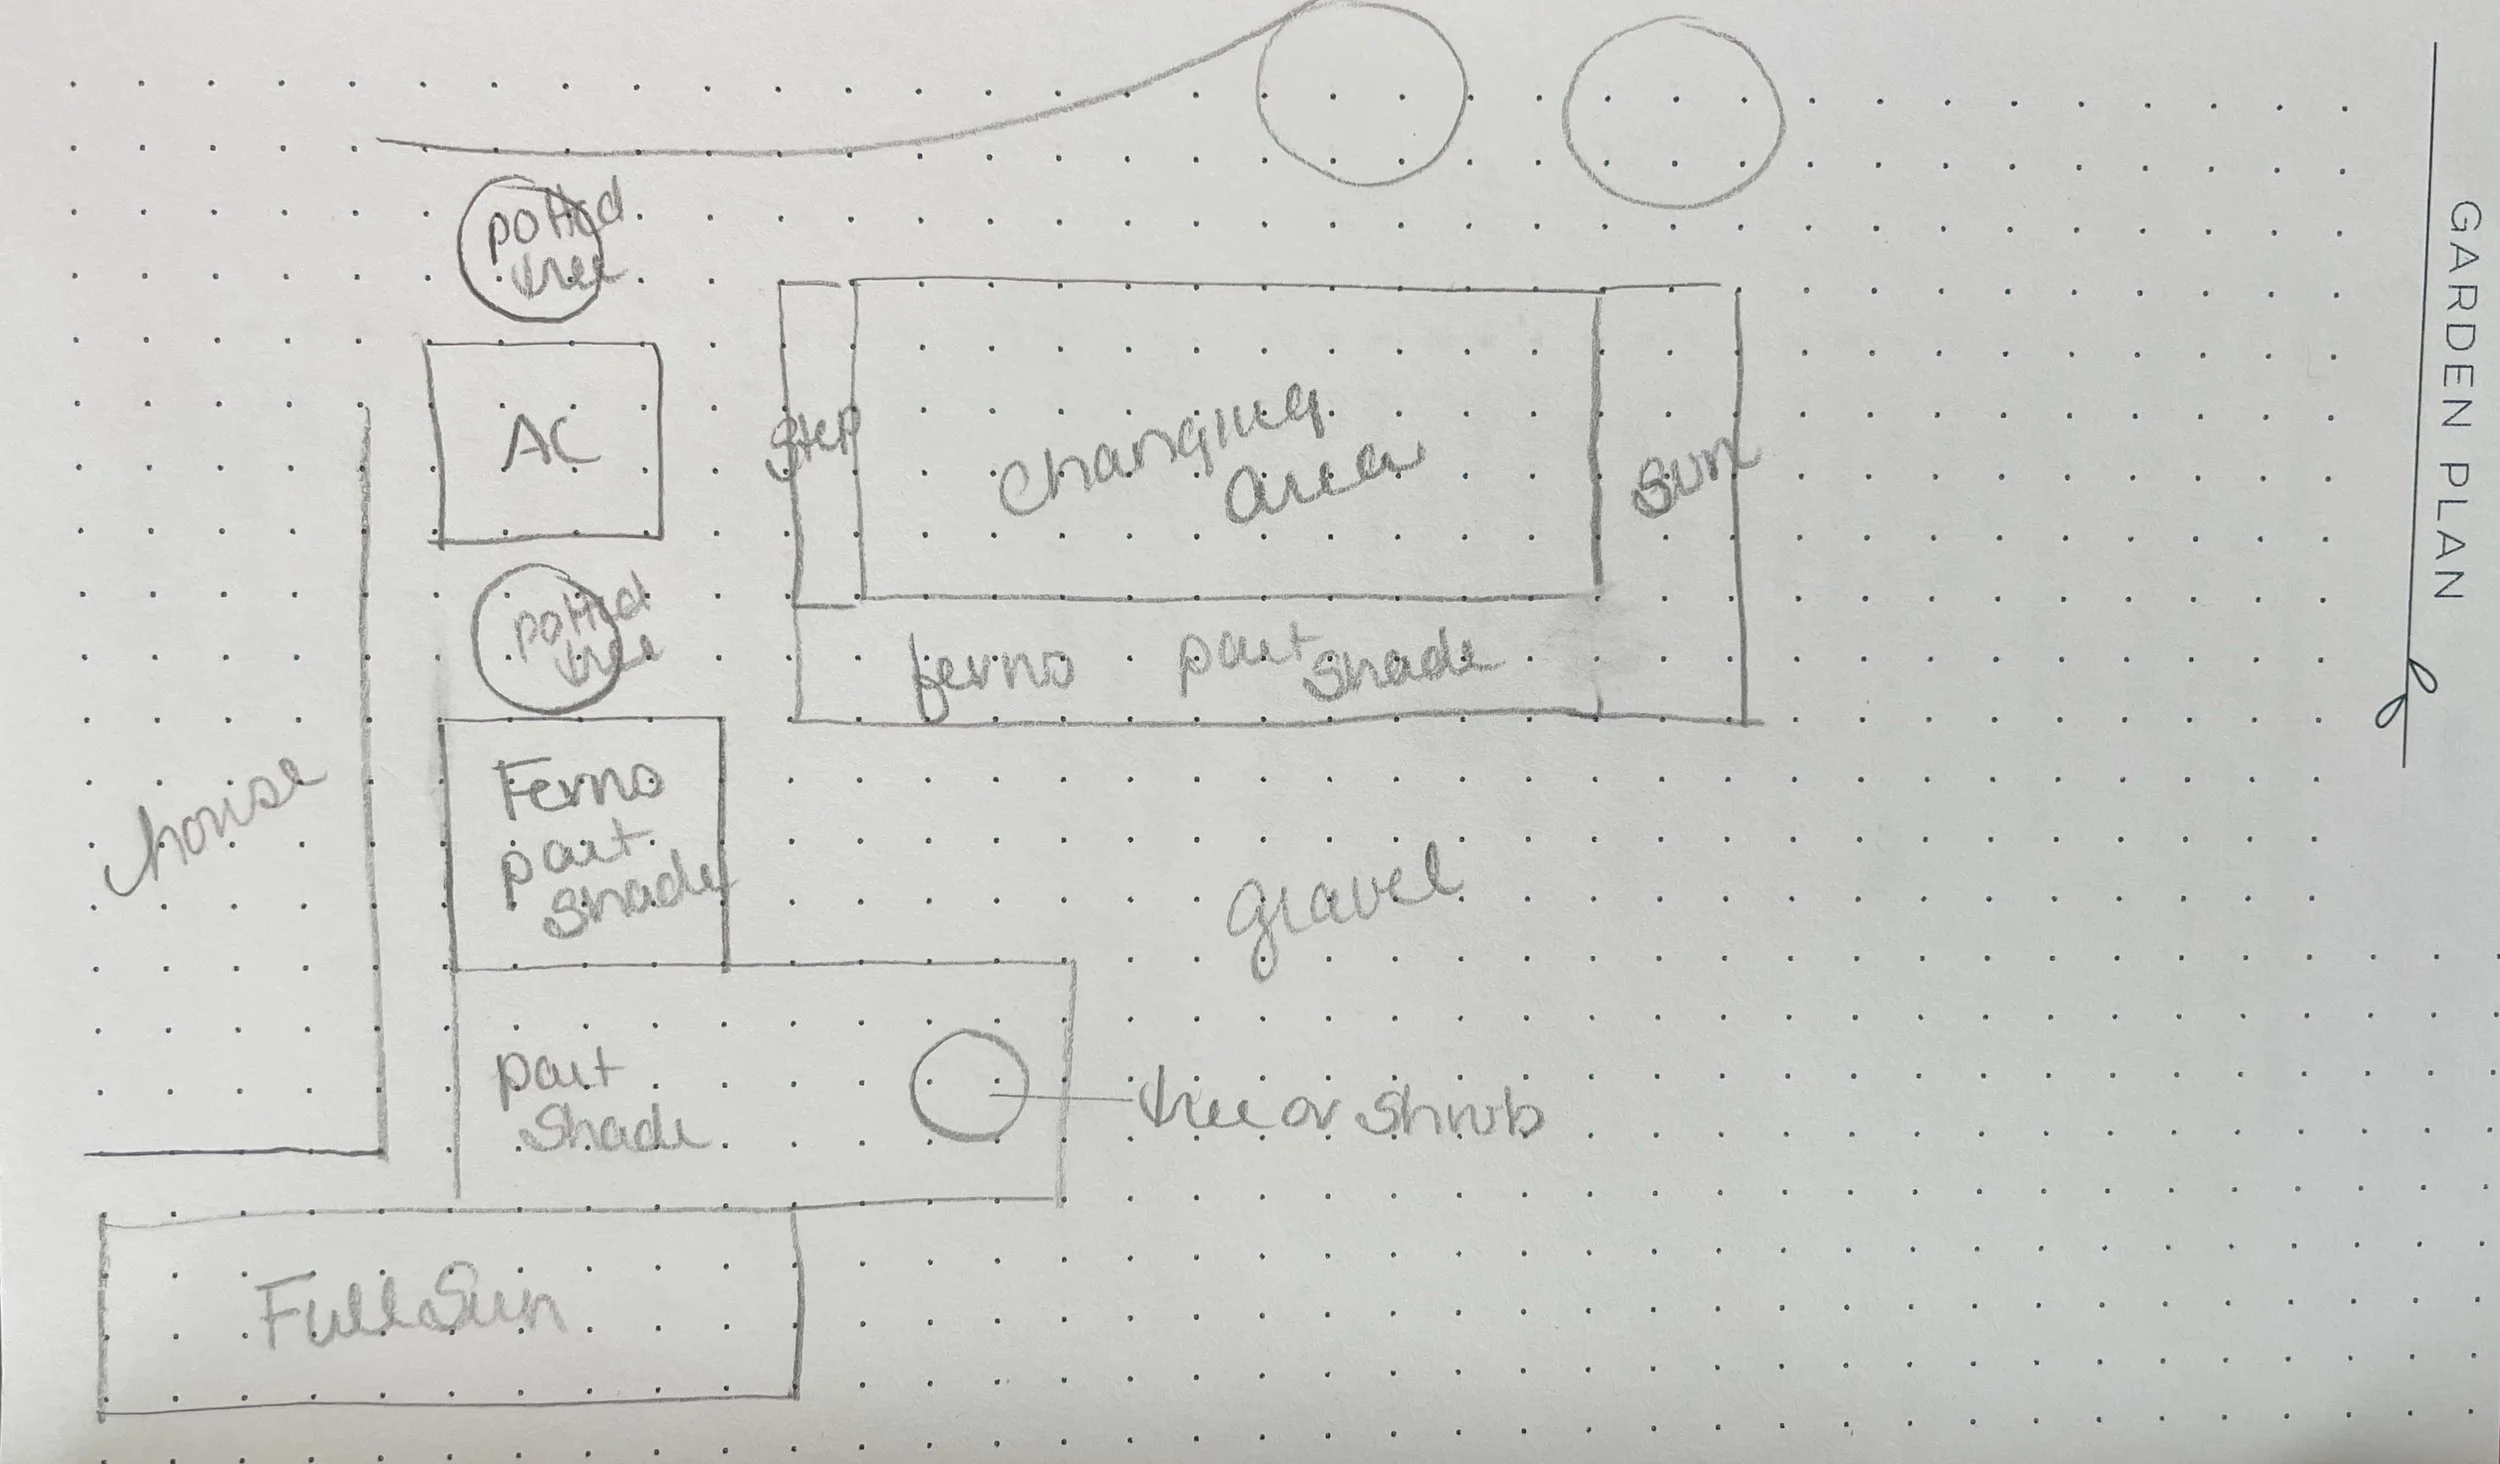 GARDEN PLAN
potted
tree
AC
Step
Changing
area
Sun
potted
tree
ferns part
shade
house
Ferns
part
shade
gravel
part
shade
tree or shrub
Full Sun